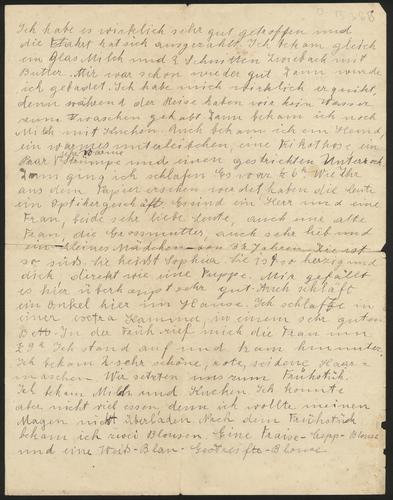 Ich habe es wirklich sehr gut getroffen und
die Fahrt hat sich ausgezahlt. Ich bekam gleich
ein Glas Milch und 2 Schnitten Zwieback mit
Butter. Mir war schon wieder gut. Dann wurde
ich gebadet. Ich habe mich wirklich erquikt,
denn während der Reise haben wir kein Wasser
zum Waschen gehabt. Dann bekam ich noch
Milch mit Kuchen. Auch bekam ich ein Hemd,
ein warmes Unterleibchen, eine Trikothose, ein
Paar Strümpfe und einen gestrickten Unterrock
Dann ging ich schlafen. Es war ½ 6h. Wie Ihr
aus dem Papier ersehen werdet haben die Leute
ein Optikergeschäft. Es sind ein Herr und eine
Frau, beide sehr liebe Leute, auch eine alte
Frau, die Grossmutter, auch sehr lieb und
ein kleines Mädchen von 3½ Jahren. Sie ist
so süß. Sie heißt Sophia. Sie ist so herzig und
dick direkt wie eine Puppe. Mir gefällt
es hier überhaupt sehr gut. Auch schläft
ein Onkel hier im Hause. Ich schlaffe in
einer extra Kammer, in einem sehr guten
Bett. In der Früh rief mich die Frau um
½ 9h. Ich stand auf und kam hinunter.
Ich bekam 2 sehr schöne, rote, seidene Haar-
maschen. Wir setzten uns zum Frühstük.
Ich bekam Milch und Kuchen. Ich konnte
aber nicht viel essen denn ich wollte meinen
Magen nicht überladen. Nach dem Frühstük
bekam ich zwei Blousen. Eine Blouse
und eine Weiß-Blau-Gestreifte-Blouse